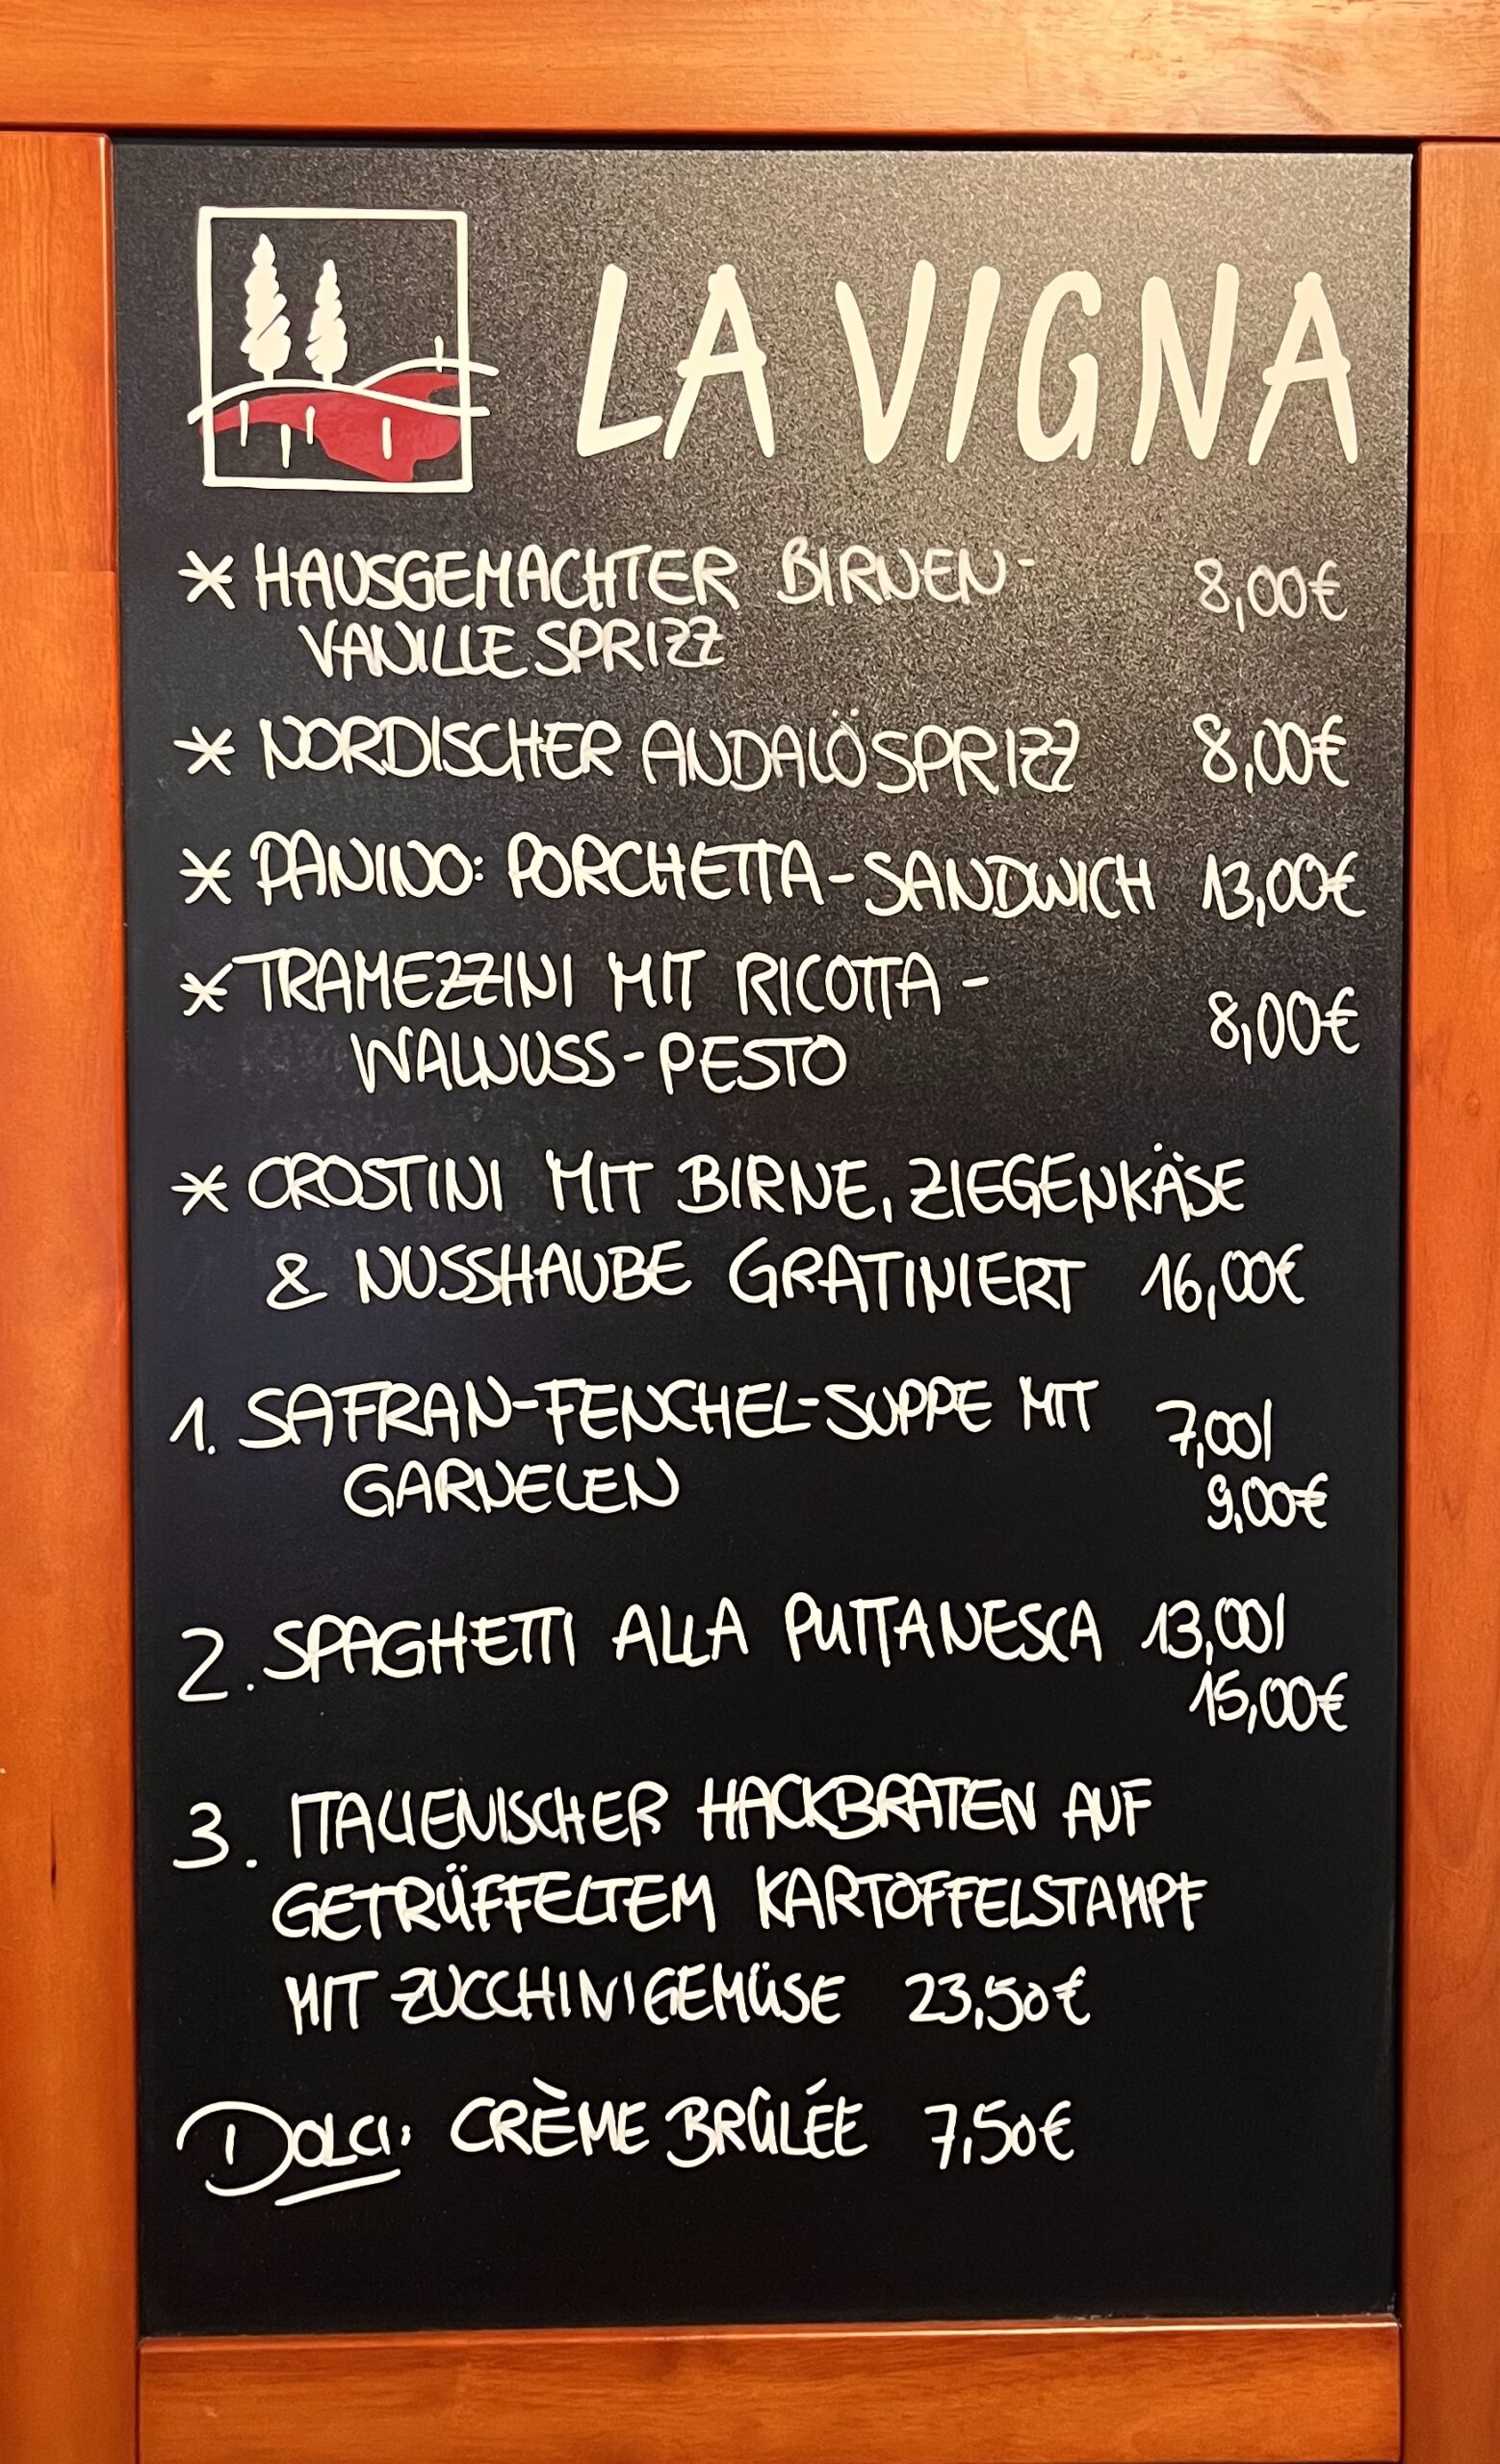 LA VIGNA
* HAUSGEMACHTER BIRNEN- 8,00€
VANILLE SPRIZZ
* NORDISCHER ANDALÖ SPRIZZ 8,00€
* PANINO: PORCHETTA-SANDWICH 13,00€
* TRAMEZZINI MIT RICOTTA- 8,00€
WALNUSS-PESTO
* CROSTINI MIT BIRNE, ZIEGENKÄSE
& NUSSHAUBE GRATINIERT 16,00€
1. SAFRAN-FENCHEL-SUPPE MIT 7,00/
GARNELEN 9,00€
2. SPAGHETTI ALLA PUTTANESCA 13,00/
15,00€
3. ITALIENISCHER HACKBRATEN AUF
GETRÜFFELTEM KARTOFFELSTAMPF
MIT ZUCCHINIGEMÜSE 23,50€
DOLCI: CRÈME BRÛLÉE 7,50€